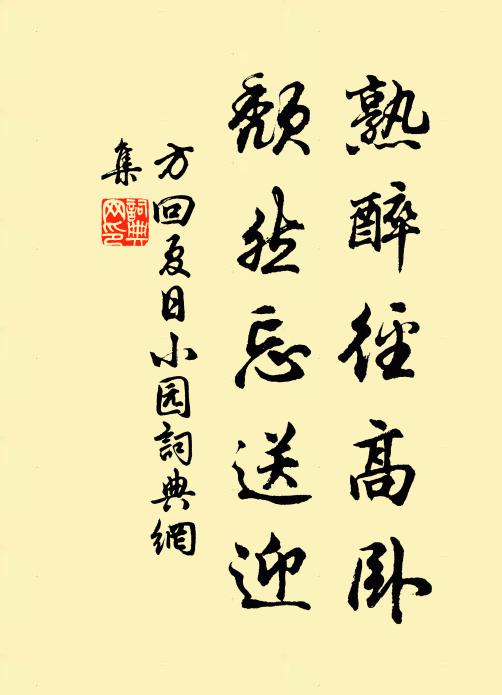 熟醉徑高卧
頹然忘送迎
方回夏日小园詞典網
集
詞典網印